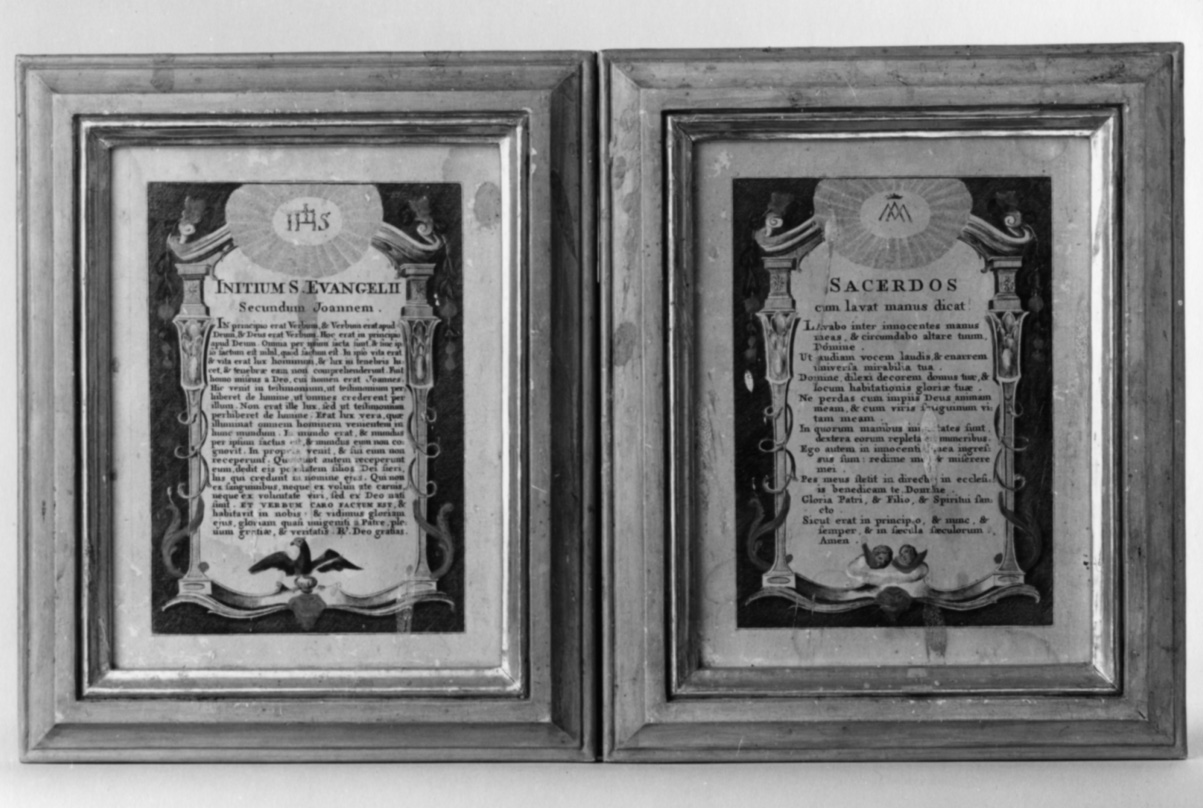 IHS
INITIUM S. EVANGELII
Secundum Joannem.
IN principio erat Verbum, & Verbum erat apud
Deum, & Deus erat Verbum. Hoc erat in principio
apud Deum. Omnia per ipsum facta sunt, & sine ip-
so factum est nihil, quod factum est. In ipso vita erat
& vita erat lux hominum, & lux in tenebris lu-
cet, & tenebræ eam non comprehenderunt. Fuit
homo missus a Deo, cui nomen erat Joannes.
Hic venit in testimonium, ut testimonium per
hiberet de lumine, ut omnes crederent per
illum. Non erat ille lux, sed ut testimonium
perhiberet de lumine. Erat lux vera, quæ
illuminat omnem hominem venientem in
hunc mundum. In mundo erat, & mundus
per ipsum factus est, & mundus eum non co-
gnovit. In propria venit, & sui eum non
receperunt. Quotquot autem receperunt
eum, dedit eis potestatem filios Dei fieri,
his qui credunt in nomine ejus. Qui non
ex sanguinibus, neque ex voluntate carnis,
neque ex voluntate viri, sed ex Deo nati
sunt. ET VERBUM CARO FACTUM EST, &
habitavit in nobis: & vidimus gloriam
ejus, gloriam quasi unigeniti a Patre, ple-
num gratiæ, & veritatis. ℟. Deo gratias.
SACERDOS
cum lavat manus dicat
Lavabo inter innocentes manus
meas, & circumdabo altare tuum,
Domine.
Ut audiam vocem laudis, & enarrem
universa mirabilia tua.
Domine, dilexi decorem domus tuæ, &
locum habitationis gloriæ tuæ.
Ne perdas cum impiis Deus animam
meam, & cum viris sanguinum vi-
tam meam.
In quorum manibus iniquitates sunt,
dextera eorum repleta muneribus.
Ego autem in innocentia mea ingres-
sus sum: redime me & miserere
mei.
Pes meus stetit in directo: in ecclesi-
is benedicam te Domine.
Gloria Patri, & Filio, & Spiritui San-
cto.
Sicut erat in principio, & nunc, &
semper, & in sæcula sæculorum.
Amen.